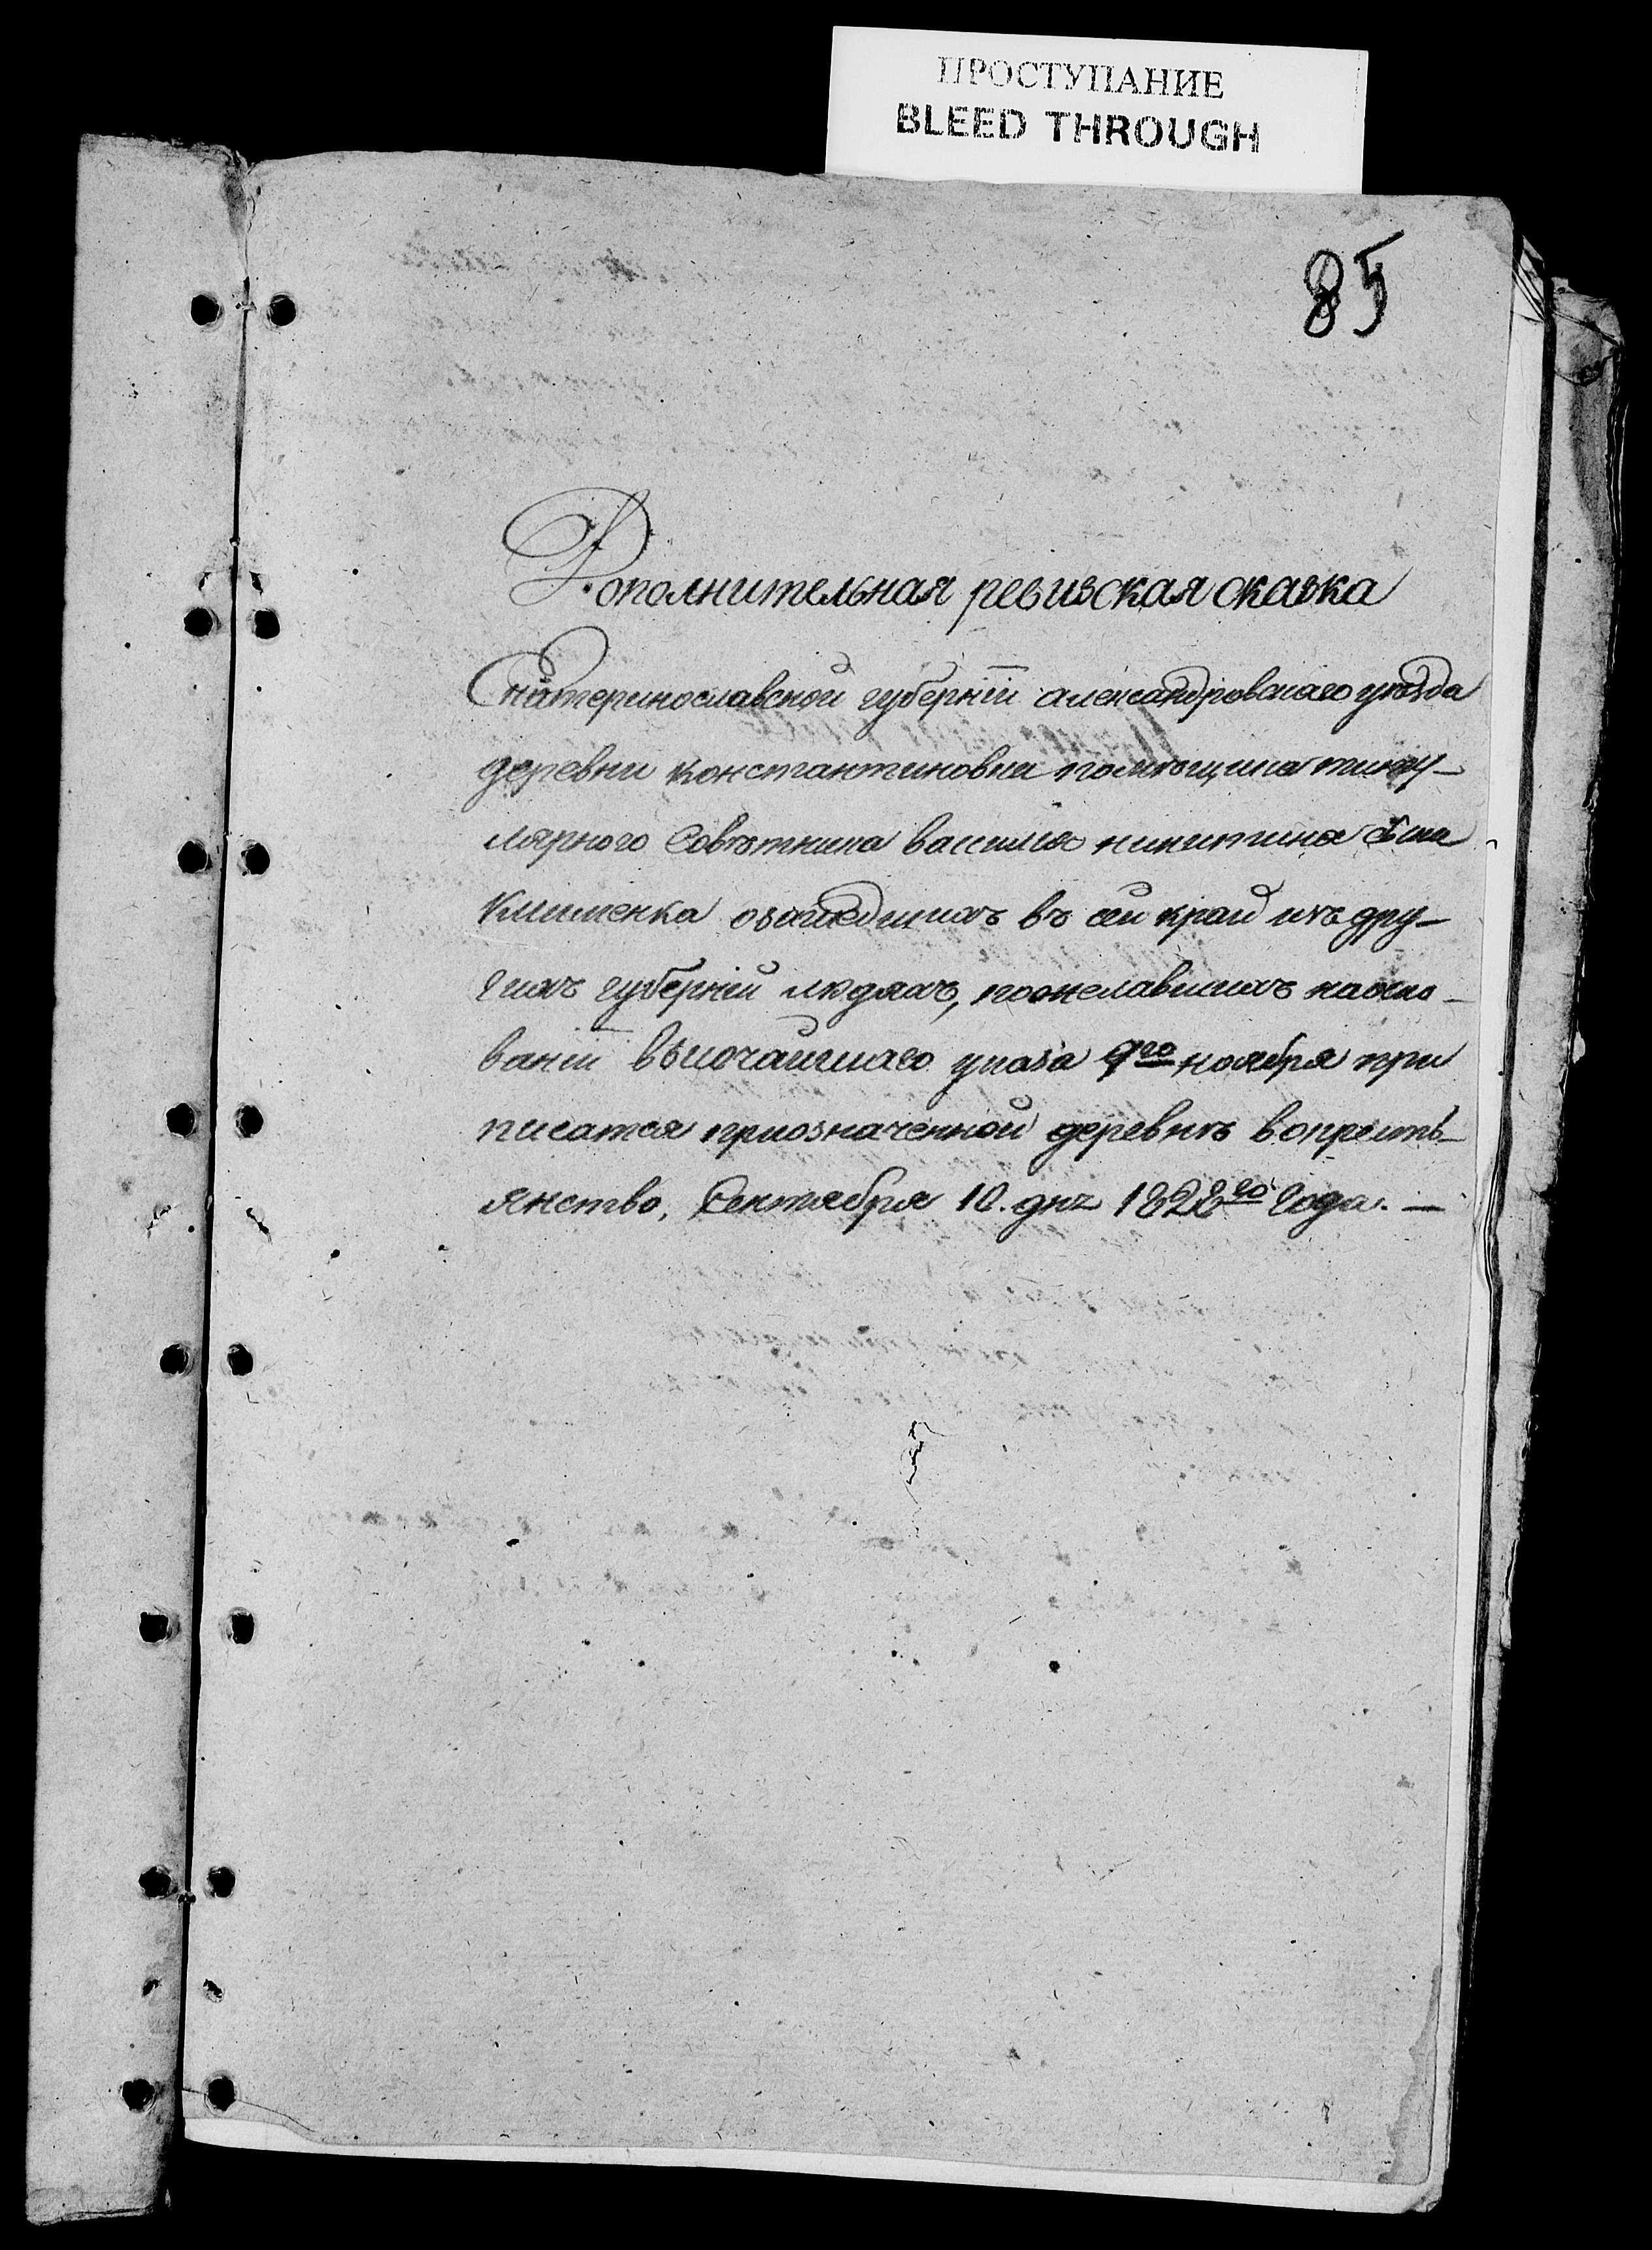 ПРОСТУПАНИЕ
BLEED THROUGH
85
Дополнительная ревизская сказка
Екатеринославской губерніи александровскаго уѣзда
деревни константиновки помѣщика титу-
лярного Совѣтника василия никитина сына
Клименка озашедшихъ въ сей край изъ дру-
гихъ губерній людяхъ, пожелавшихъ наосно-
ваніи высочайшаго указа 9го ноября при
писатся приозначенной деревнѣ вокресть-
янство, Сентября 10. дня 1828го Года. —